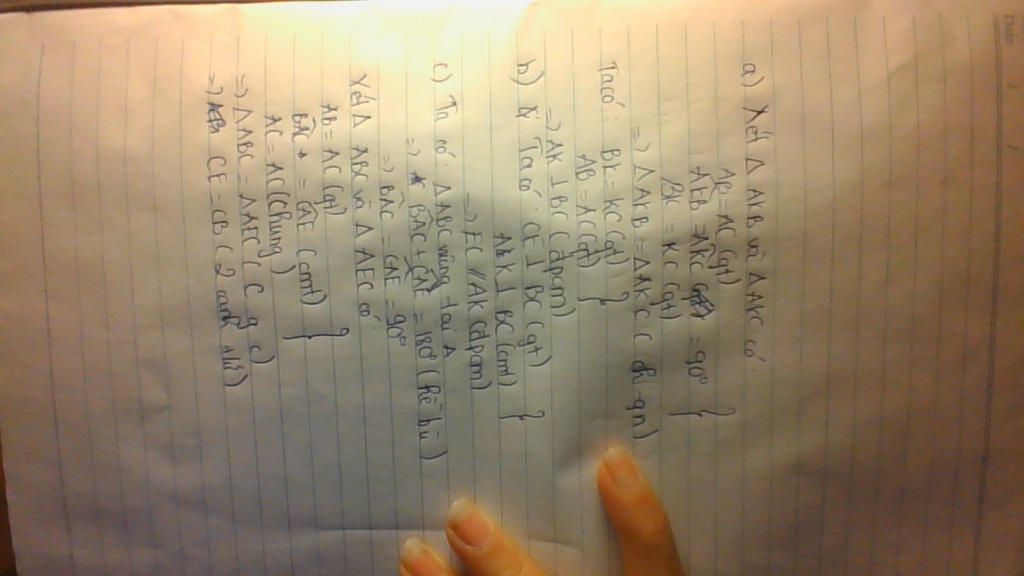 Date / /
a) Xét Δ AKB và Δ AKC có
AB = AC (gt)
AKB = AKC = 90°
BK = KC (gt)
=> Δ AKB = Δ AKC ( - gn)
Ta có: BK = KC (gt)
AB = AC (gt)
=> AK ⊥ BC (đpcm)
b) Ta có: CE ⊥ BC (gt)
AK ⊥ BC (cmt)
=> EC // AK (đpcm)
c) Ta có Δ ABC vuông tại A
=> BAC + CAE = 180° (kề bù)
=> BAC = CAE = 90°
Xét Δ ABC và Δ AEC có
Ab = AC (gt)
BAC = CAE (cmt)
AC = AC (chung)
=> Δ ABC = Δ AEC (c g c)
=> CE = CB (2 cạnh)